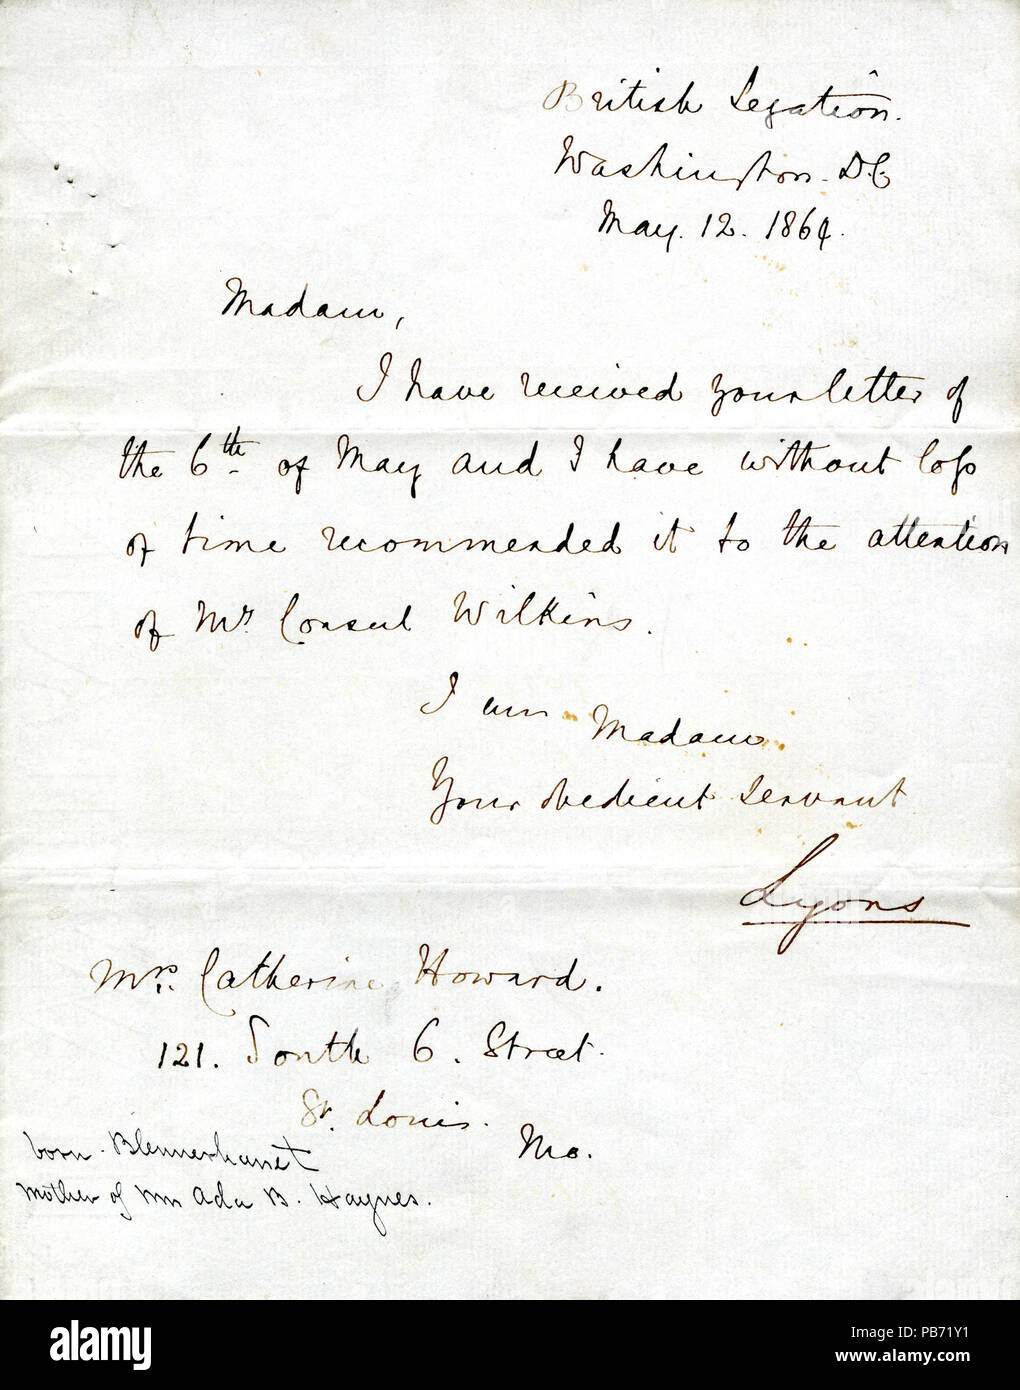 British Legation.
Washington. D.C.
May. 12. 1864.
Madam,
I have received your letter of
the 6th of May and I have without loss
of time recommended it to the attention
of Mr. Consul Wilkins.
I am Madam
Your obedient Servant
Lyons
Mrs. Catherine Howard.
121. South 6. Street.
St. Louis.
Mo.
born - Blennerhasset
mother of Mrs Ada B. Haynes.
alamy
Image ID: PB71Y1
www.alamy.com